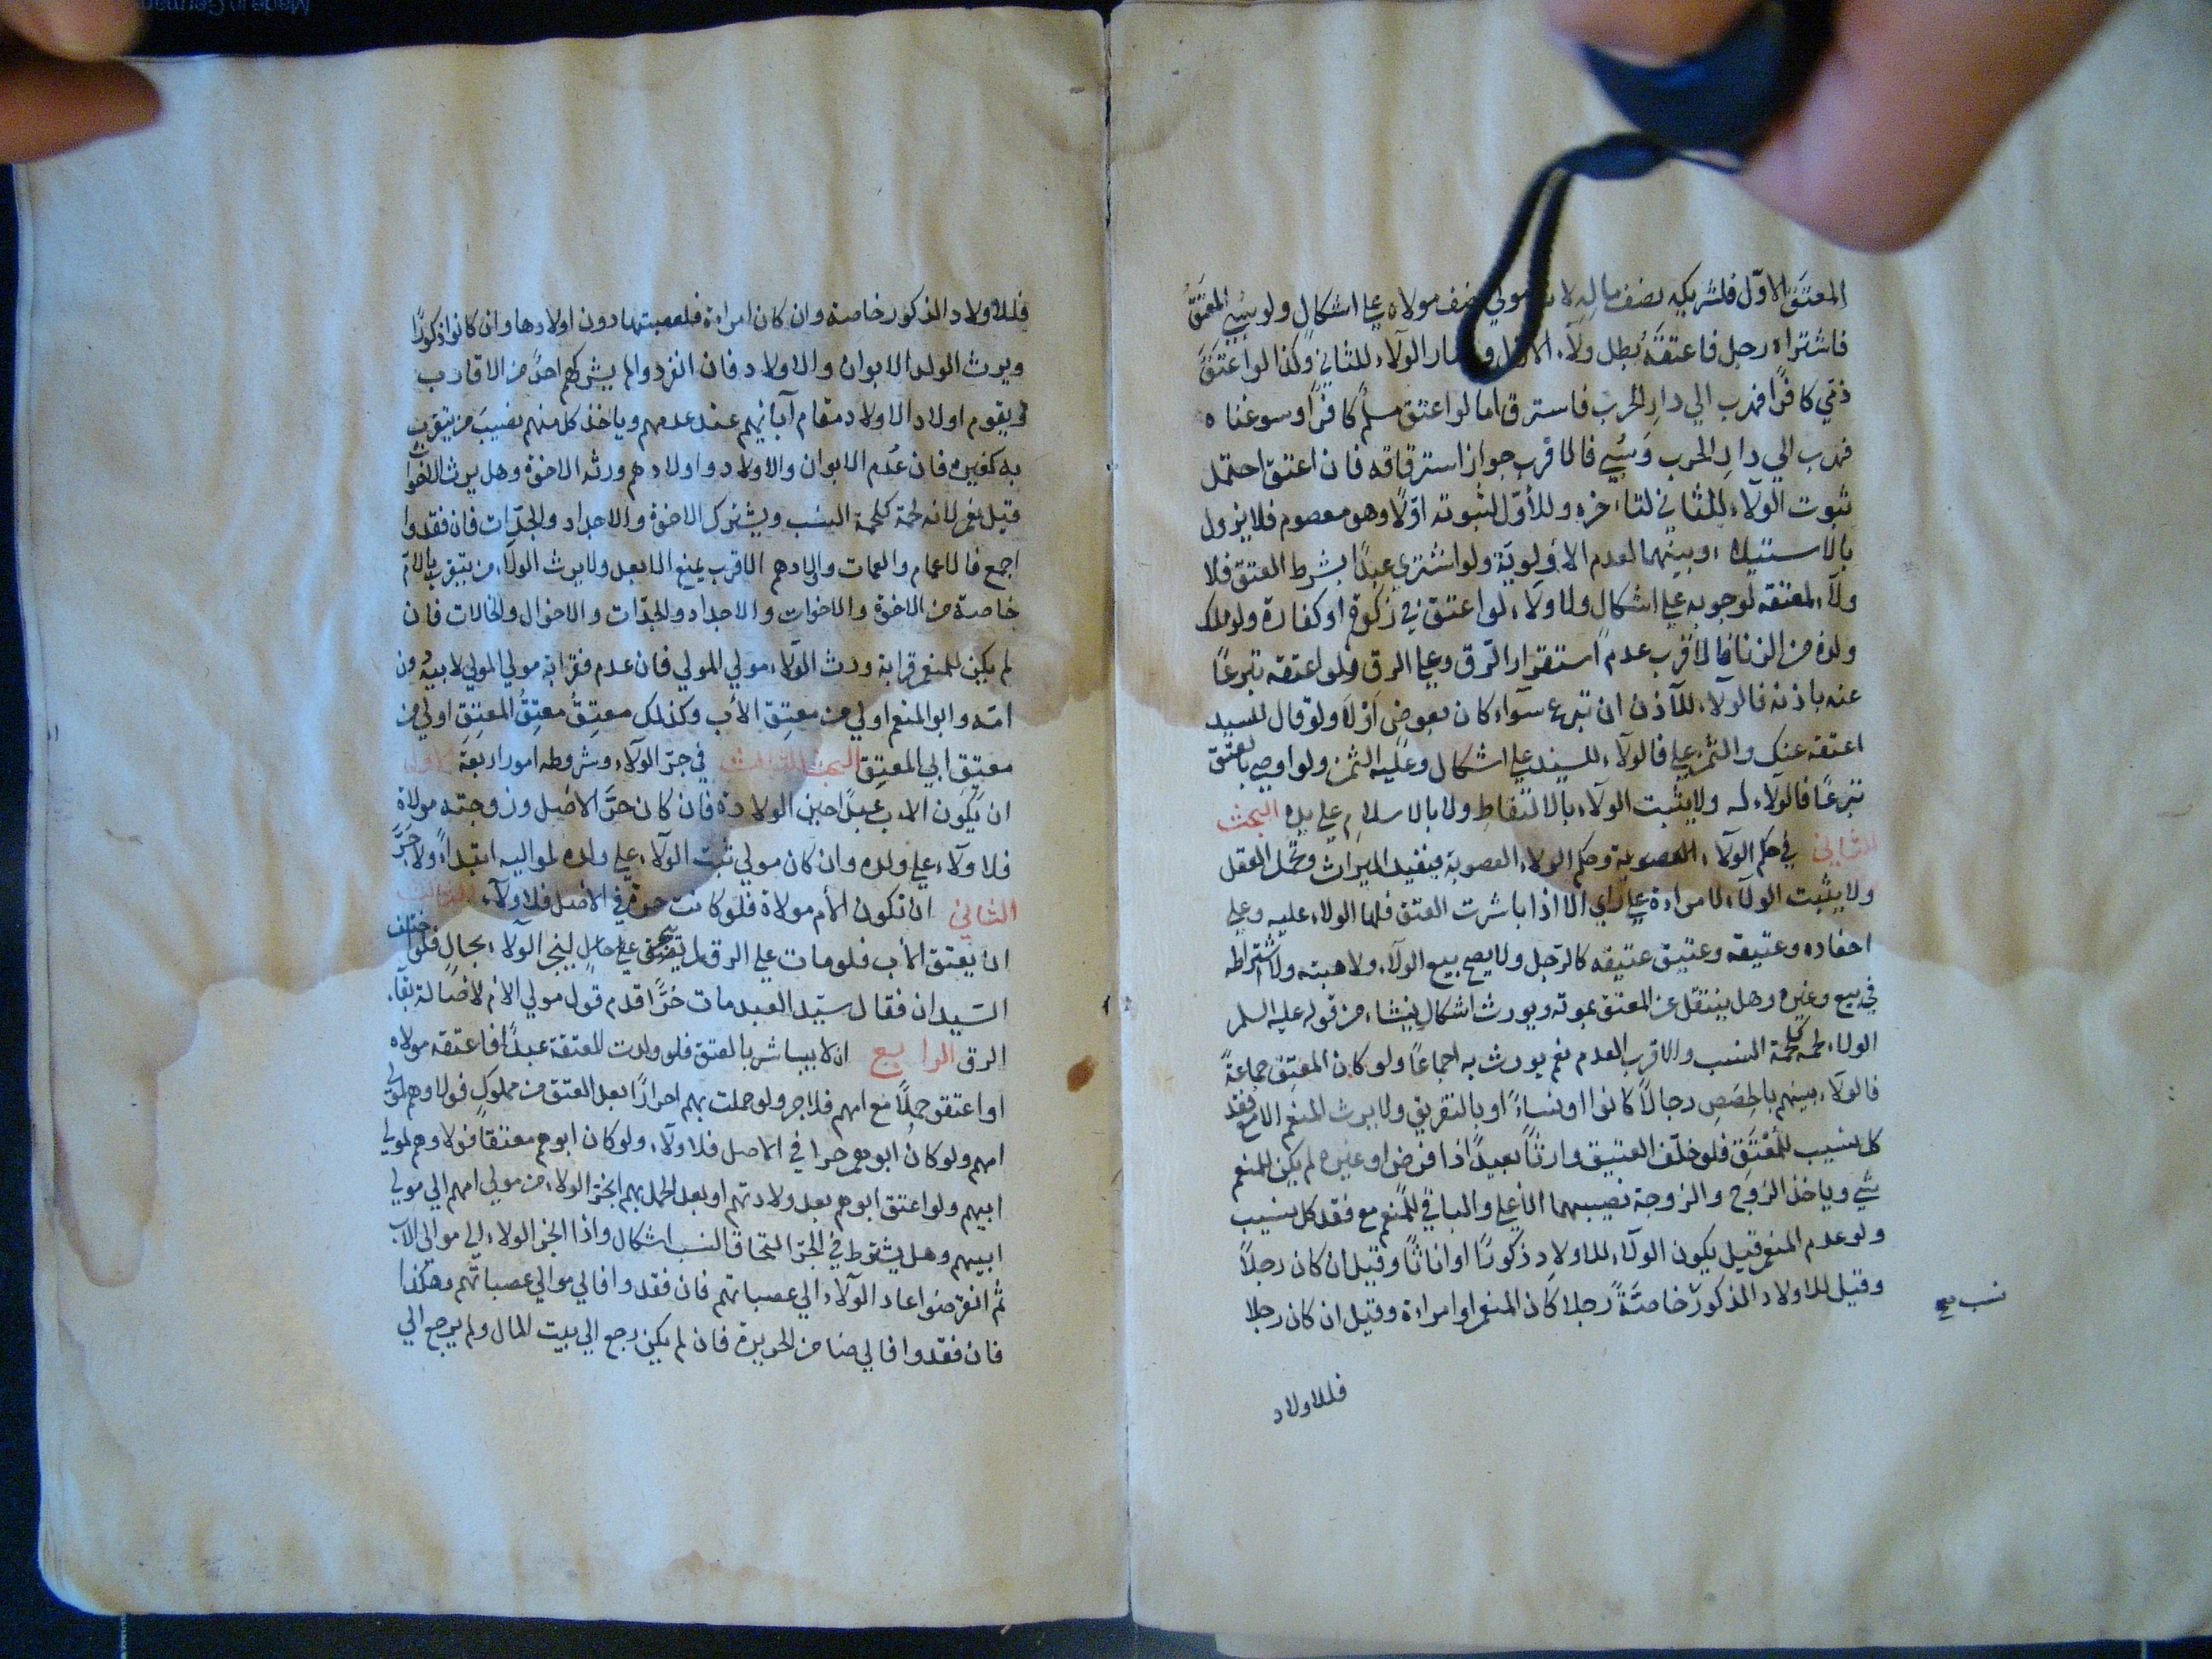 المعتق الاوّل فلشريكه نصف ماله لانه مولي نصف مولاه علي اشكال ولو سُبي المعتَق
فاشتراه رجل فاعتقَهُ بطل ولاء الاول وصار الولاء للثاني وكذا لو اعتقَ
ذمي كافرًا فهرب الي دار الحرب فاسترق اما لو اعتق مسلم كافرًا وسوغناه
فهرب الي دار الحرب وَسُبِي فالاقرب جواز استرقاقه فان اعتق احتمل
ثبوت الولاء للثاني لتاخره وللأوّل لثبوته اوّلًا وهو معصوم فلا يزول
بالاستيلاء وبينهما لعدم الاولويَة ولو اشتري عبدًا بشرط العتق فلا
ولاء لمعتقه لوجوبه علي اشكال ولا ولاء لو اعتق في زكوة او كفارة ولو ملك
ولده من الزنا فالاقرب عدم استقرار الرق وعلي الرق فلو اعتقه تبرعًا
عنه باذنه فالولاء للآذن ان تبرع سوآء كان بعوض اَوْ لا ولو قال للسيد
اعتقه عنك والثمن علي فالولاء للسيد علي اشكال وعليه الثمن ولو اوصي بالعتق
تبرعًا فالولاء له ولا يثبت الولاء بالالتقاط ولا بالاسلام علي يده البحث
الثاني في حكم الولاء العصوبة وحكم الولاء العصوبة فيفيد الميراث وتحمل العقل
ولا يثبت الولاء لامراءة علي راي الا اذا باشرت العتق فلها الولاء عليه وعلي
احفاده وعتيقه وعتيق عتيقه كالرجل ولا يصح بيع الولاء ولا هبته ولا اشتراطه
في بيع وغيره وهل ينتقل عن المعتق بموته ويورث اشكال ينشاء من قوله عليه السلم
الولاء لحمة كلحمة النسب والاقرب العدم نعم يورث به اجماعًا ولو كان المعتِق جماعةً
فالولاء بينهم بالحِصَصِ رجالًا كانوا او نساءً او بالتفريق ولا يرث المنعم الا مع فقد
كل نسيب للمُعْتَقِ فلو خلّف العتيق وارثًا بعيدًا ذا فرض او غيره لم يكن للمنعم
شي وياخذ الزوج والزوجة نصيبهما الاعلي والباقي للمنعم مع فقد كل نسيب
ولو عدم المنعم قيل يكون الولاء للاولاد ذكورًا او اناثًا وقيل ان كان رجلًا
وقيل للاولاد الذكور خاصَّةً رجلا كان المنعم او امراءة وقيل ان كان رجلا
نسب صح
فللاولاد
فللاولاد الذكور خاصة وان كان امراءة فلعصبتها دون اولادها وان كانوا ذكورًا
ويرث الولاء الابوان والاولاد فان انفردوا لم يشركهم احدٌ من الاقارب
ويقوم اولاد الاولاد مقام آبائهم عند عدمهم وياخذ كل منهم نصيبَ من يتقرب
به كغيره فان عُدم الابوان والاولاد واولادهم ورثه الاخوة وهل يرث الاخوات
قيل نعم لانه لحمة كلحمة النسب ويشترك الاخوة والاجداد والجدّات فان فقدوا
اجمع فالاعمام والعمات واولادهم الاقرب يمنع الابعد ولا يرث الولاء من يتقرب بالامّ
خاصة من الاخوة والاخوات والاجداد والجدّات والاخوال والخالات فان
لم يكن للمنعم قرابة ورث الولاء مولي المولي فان عدم فقرابة مولي المولي لابيه دون
امّه وابو المنعم اولي من معتِق الأب وكذلك معتِقُ معتِقُ المعتِقِ اولي من
معتِق ابي المعتِق البحث الثالث في جرّ الولاء وشروطه امور اربعة الاول
ان يكون الاب عبدًا حين الولادة فان كان حرَّ الاصل وزوجته مولاة
فلا ولاء علي ولده وان كان مولي ثبت الولاء علي ولده لمواليه ابتداءً ولا جَرَّ
الثاني ان تكون الأم مولاة فلو كانت حرة في الاصل فلا ولاء الثالث
ان يعتق الأب فلو مات علي الرق لم ينجر علي حال لينجر الولاء بحال فلو اختلف
السّيدان فقال سيّد العبد مات حُرًّا قدم قول مولي الام لاصَالة بقاء
الرق الرابع ان لا يباشر بالعتق فلو ولدت المعتقة عبدًا فاعتقه مولاه
او اعتقو حملًا مع امهم فلا جر ولو حملت بهم احرارًا بعد العتق من مملوكٍ فولاوهم لمولي
امهم ولو كان ابوهم حرا في الاصل فلا ولاء ولو كان ابوهم معتقًا فولاوهم لمولي
ابيهم ولو اعتق ابوهم بعد ولادتهم او بعد الحمل بهم انجرّ الولاء من مولي امهم الي مولي
ابيهم وهل يشترط في الجرّ التحاق النسب اشكال واذا انجر الولاء الي موالي الاب
ثم انقرضوا عاد الولاء الي عصباتهم فان فقدوا فالي موالي عصباتهم وهكذا
فان فقدوا فالي ضامن الجريرة فان لم يكن رجع الي بيت المال ولم يرجع الي